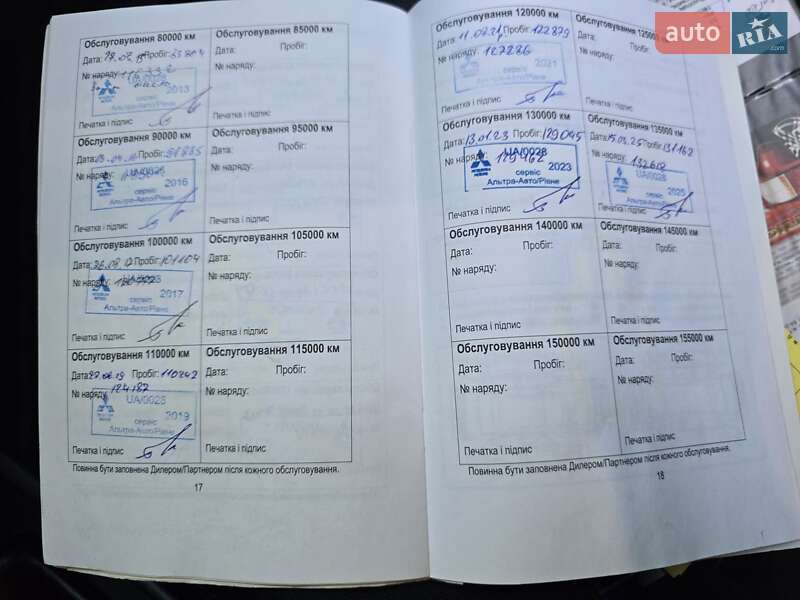 auto RIA
Обслуговування 80000 км
Дата:
Пробіг:
№ наряду:
UA/0028
сервіс 2013
Альтра-Авто/Рівне
Печатка і підпис
Обслуговування 85000 км
Дата: Пробіг:
№ наряду:
Печатка і підпис
Обслуговування 90000 км
Дата: Пробіг:
№ наряду:
2016
сервіс
Альтра-Авто/Рівне
Печатка і підпис
Обслуговування 95000 км
Дата: Пробіг:
№ наряду:
Печатка і підпис
Обслуговування 100000 км
Дата: Пробіг: 101104
№ наряду:
2017
сервіс
Альтра-Авто/Рівне
Печатка і підпис
Обслуговування 105000 км
Дата: Пробіг:
№ наряду:
Печатка і підпис
Обслуговування 110000 км
Дата: Пробіг: 110242
№ наряду: 124187
UA/0028
2019
сервіс
Альтра-Авто/Рівне
Печатка і підпис
Обслуговування 115000 км
Дата: Пробіг:
№ наряду:
Печатка і підпис
Повинна бути заповнена Дилером/Партнером після кожного обслуговування.
17
Обслуговування 120000 км
Дата: Пробіг: 122879
№ наряду: 127286
2021
Печатка і підпис
Обслуговування 125000
Дата:
№ наряду:
Обслуговування 130000 км
Дата: 13.01.23 Пробіг: 129045
№ наряду: 129462
UA/0028
сервіс 2023
Альтра-Авто/Рівне
Печатка і підпис
Обслуговування 135000 км
Дата: 15.03.25 Пробіг: 131162
№ наряду: 132602
UA/0028
2025
Печатка і підпис
Обслуговування 140000 км
Дата: Пробіг:
№ наряду:
Печатка і підпис
Обслуговування 145000 км
Дата: Пробіг:
№ наряду:
Печатка і підпис
Обслуговування 150000 км
Дата: Пробіг:
№ наряду:
Печатка і підпис
Обслуговування 155000 км
Дата: Пробіг:
№ наряду:
Печатка і підпис
Повинна бути заповнена Дилером/Партнером після кожного обслуговування.
18